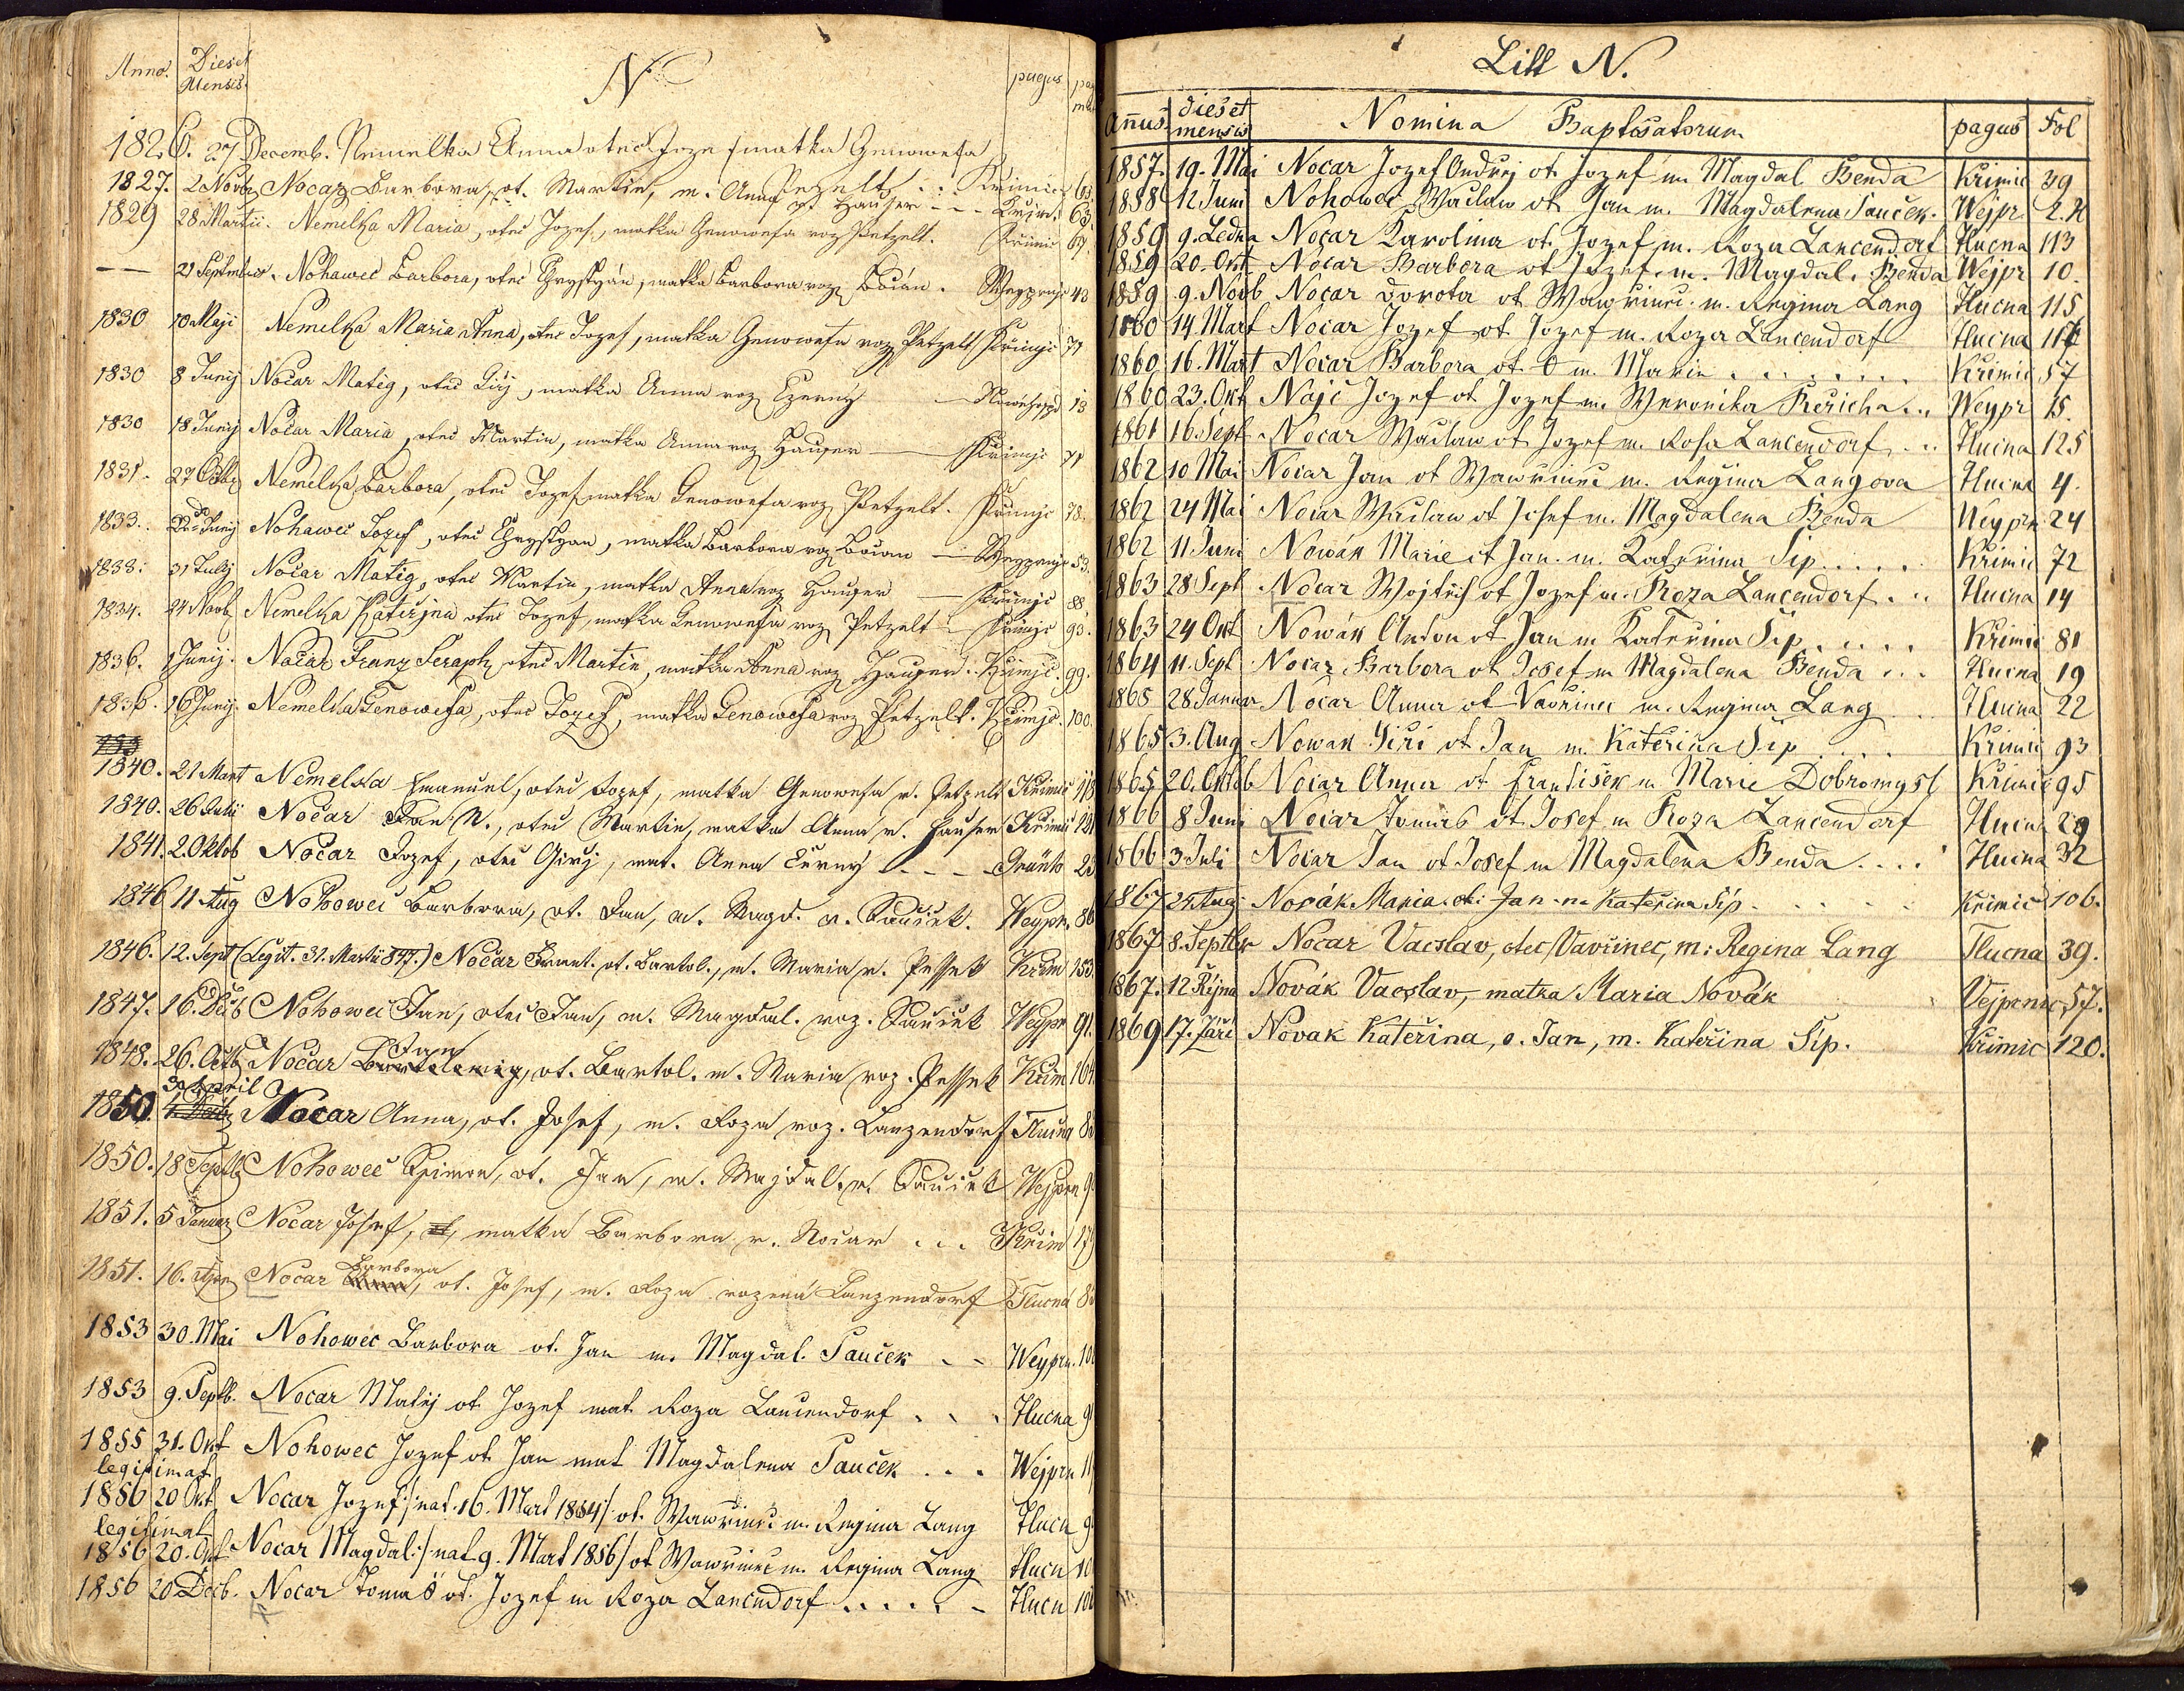 Anno. Dies et Mensis. N. pagus pag
1826. 27 Decemb. Nemelka Anna otec Jozef matka Genowefa Pezelt Krimic 63.
1827. 2 Novbr Nocar Barbora, ot. Martin, m. Anna Hauser - - - Krim. 63.
1829 28 Martii. Nemelka Maria, otec Jozef, matka Genowefa roz Petzelt. Krimic 69.
— — 21 Septembris. Nohawec Barbora, otec Chrystyán, matka Barbora roz Bočán. Weyprnic 43
1830 10 Maji Nemelka Maria Anna, otec Jozef, matka Genowefa roz Petzelt Křimjc 71
1830 8 Junij Nočar Matěg, otec Girj, matka Anna roz Czerny — 13
1830 18 Junij Nočar Maria, otec Martin, matka Anna roz Hauser — Křimjc 71
1831. 27 Octbr Nemelka Barbora, otec Jozef matka Genowefa roz Petzelt. Křimjc 78.
1833. 22 Junij Nohawec Jozef, otec Chrystyan, matka Barbora roz Bočan — Weyprnic 53.
1833. 31 Julij Nočar Matěg, otec Martin, matka Anna roz Hauser — Křimjc 88
1834. 24 Novb. Nemelka Kateřjna otec Jozef, matka Genowefa roz Petzelt — Křimjc 93.
1836. 1 Junij. Nočar Franz Seraph, otec Martin, matka Anna roz Hauser. Křimjc. 99.
1836. 16 Junij. Nemelka Genowefa, otec Jozef, matka Genowefa roz Petzelt. Křimjc. 100.
1840. 21 Mart Nemelka Emanuel, otec Jozef, matka Genowefa r. Petzelt Křimic 118
1840. 26 Julii Nočar Jan N., otec Martin, matka Anna r. Hauser Křimic 121
1841. 2. Oktob Nočar Jozef, otec Girj, mat. Anna Černy - - - 23
1846 11 Aug Nohowec Barbora, ot. Jan, m. Magd. r. Paucek. Weypr. 86
1846. 12. Sept (Legit. 31. Martii 847.) Nočar Frant. ot. Bartol., m. Maria r. Pessek Krim 153.
1847. 16. Dec Nohowec Jan, otec Jan, m. Magdal. roz. Paucek Weypr 91.
1848. 26. Octb Nočar Jan Bartolomig, ot. Bartol. m. Maria roz. Pessek Krim 164.
1850. 30 April Nocar Anna, ot. Josef, m. Roza roz. Lanzendorf Tlučna 83
1850. 18 Septb Nohowec Šimon, ot. Jan, m. Majdal. r. Paucek Wejprn 9
1851. 5 Januar Nocar Josef, matka Barbora r. Nocar ... Krim 17
1851. 16. Nocar Barbora, ot. Josef, m. Roza rozená Lanzendorf Tlucná 8
1853 30. Mai Nohowec Barbora ot. Jan m. Magdal. Pauček - - Weyprn. 10
1853 9. Septb. Nocar Matěj ot Jozef mat Roza Lancendorf . . . Tlucna 9
1855 31. Okt Nohowec Jozef ot Jan mat Magdalena Pauček . . . Wejprn 11
legitimat
1856 20 Okt Nocar Jozef /: nat. 16. Mart 1854 :/ ot. Wawřinec m. Regina Lang Tlucn 9
legitimat
1856 20. Okt Nocar Magdal: /: nat. 9. Mart 1856 / ot Wawřinec m. Regina Lang Tlucn 10
1856 20 Decb. Nocar Tomaš ot. Jozef m Roza Lancndorf . . . . . - Tlucn 10
Litt N.
Annus dies et mensis Nomina Baptisatorum pagus Fol
1857. 19. Mai Nocar Jozef Ondrej ot Jozef m. Magdal Benda Krimic 39
1858 12 Juni Nohowec Waclaw ot Jan m. Magdalena Pauček. Wejpr.
1859 9. Ledna Nočar Karolina ot. Jozef m. Roza Lancendorf Tlucna 113
1859 20. Okt Nocar Barbora ot Jozef. m. Magdal. Benda Wejpr 10.
1859 9. Novb Nočar Dorota ot Wawřinec. m. Regina Lang Tlucna 115
1860 14. Mart Nocar Jozef ot Jozef m. Roza Lancendorf Tlucna 116
1860 16. Mart Nocar Barbora ot. 0 m. Marie . . . . . . . Krimic 57
1860 23. Okt Najč Jozef ot Jozef m. Weronika Kericha . . Weypr 15.
1861 16. Sept Nocar Waclaw ot Jozef m. Rosa Lancendorf . . Tlucna 125
1862 10 Mai Nočar Jan ot Wawřinec m. Regina Langova Tlucna 4.
1862 24 Mai Nocar Waclaw ot Josef m. Magdalena Benda Weyprn 24
1862 11 Juni Nowák Marie ot Jan. m. Kateřina Sip . . . . . Krimic 72
1863 28 Sept Nocar Wojtěch ot Jozef m. Roza Lancendorf . . . Tlucna 14
1863 24 Okt Nowák Anton ot Jan m Kateřina Sip . . . . . Krimic 81
1864 11. Sept Nocar Barbora ot Josef m Magdalena Benda . . . Tlucna 19
1865 28 Januar Nocar Anna ot Vavrinec m. Regina Lang . . Tlucna 22
1865 3. Aug Nowak Jiri ot Jan m. Kateřina Sip . . . . Krimic 93
1865 20. Oktob Nocar Anna ot František m Marie Dobromysl Krimic 95
1866 8 Juni Nocar Tomas ot Josef m Roza Lancendorf Tlucna 29
1866 3 Juli Nocar Jan ot Josef m Magdalena Benda . . . . Tlucna 32
1867 24 Aug. Novák Maria. ot: Jan m. Kateřina Sip . . . . . Krimic 106.
1867 8. Septbr Nocar Vacslav, otec Vavřinec, m: Regina Lang Tlucna 39.
1867. 12 Října Novák Vacslav, matka Maria Novák Vejprnic 57.
1869 17. Září Novak Kateřina, o. Jan, m. Kateřina Šíp. Křimic 120.